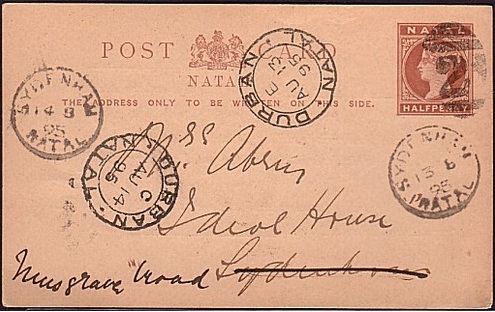 POST CARD
NATAL
THE ADDRESS ONLY TO BE WRITTEN ON THIS SIDE.
NATAL
HALFPENNY
DURBAN · NATAL
E
AU 13
95
SYDENHAM
14 8
95
NATAL
SYDENHAM
13 8
95
NATAL
DURBAN · NATAL
C
AU 14
95
Miss
Ideal House
Sydenham
Musgrave road